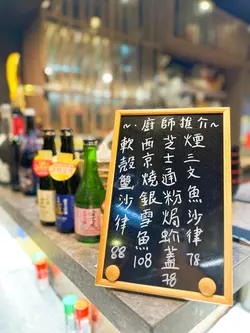 ~·廚師推介·~
煙三文魚沙律 78
芝士通粉焗蚧蓋 78
西京燒銀雪魚 108
軟殼蟹沙律 88